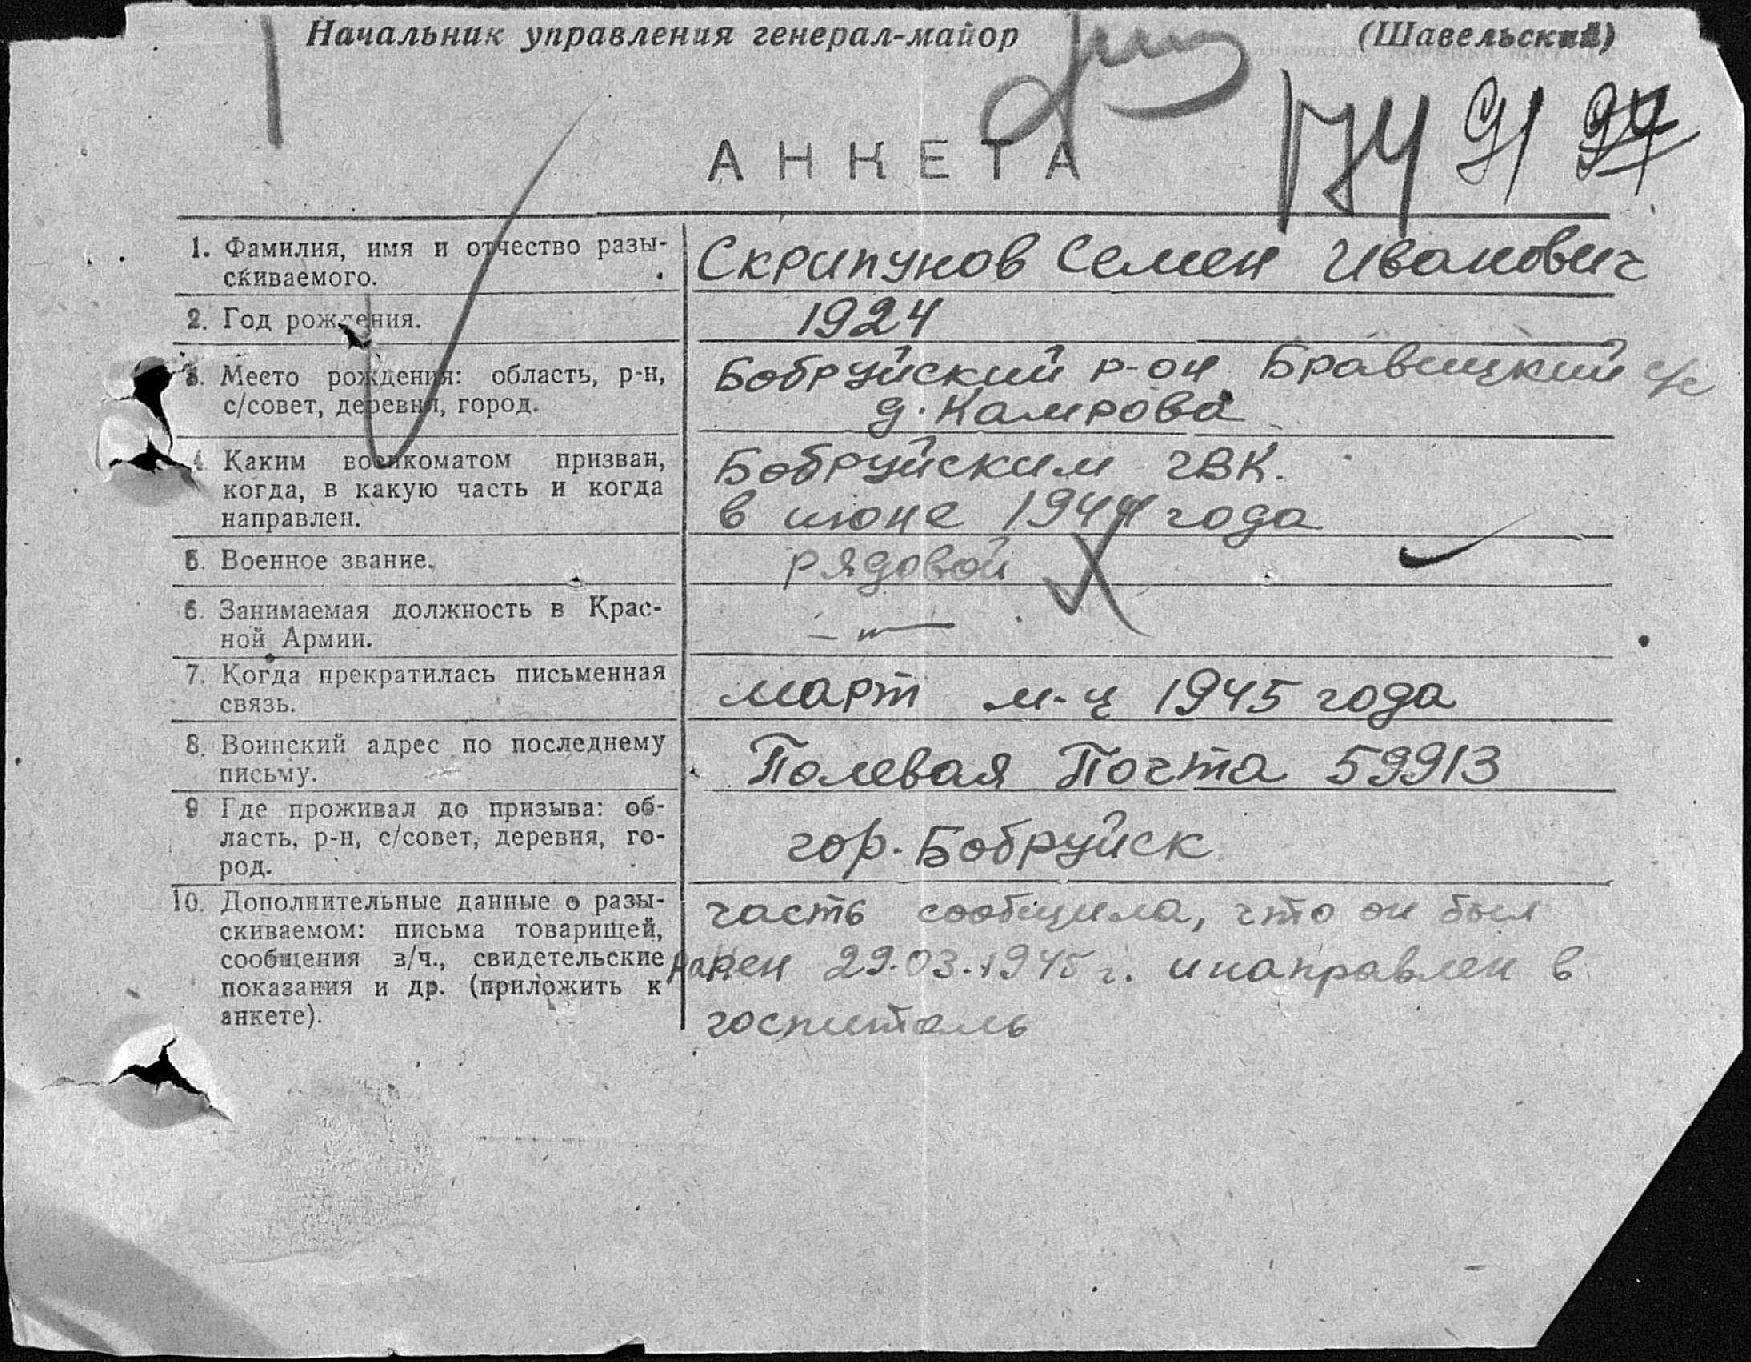 Начальник управления генерал-майор (Шавельский)
174 91 94
АНКЕТА
1. Фамилия, имя и отчество разы-
скиваемого.
Скрипунов Семен Иванович
2. Год рождения.
1924
3. Место рождения: область, р-н,
с/совет, деревня, город.
Бобруйский р-он Бравицкий с/с
д. Камрова
4. Каким военкоматом призван,
когда, в какую часть и когда
направлен.
Бобруйским ГВК.
в июне 1944 года
5. Военное звание.
рядовой
6. Занимаемая должность в Крас-
ной Армии.
-"-
7. Когда прекратилась письменная
связь.
март м-ц 1945 года
8. Воинский адрес по последнему
письму.
Полевая Почта 59913
9 Где проживал до призыва: об-
ласть, р-н, с/совет, деревня, го-
род.
гор. Бобруйск
10. Дополнительные данные о разы-
скиваемом: письма товарищей,
сообщения в/ч., свидетельские
показания и др. (приложить к
анкете).
часть сообщила, что он был
ранен 29.03.1945 г. и направлен в
госпиталь